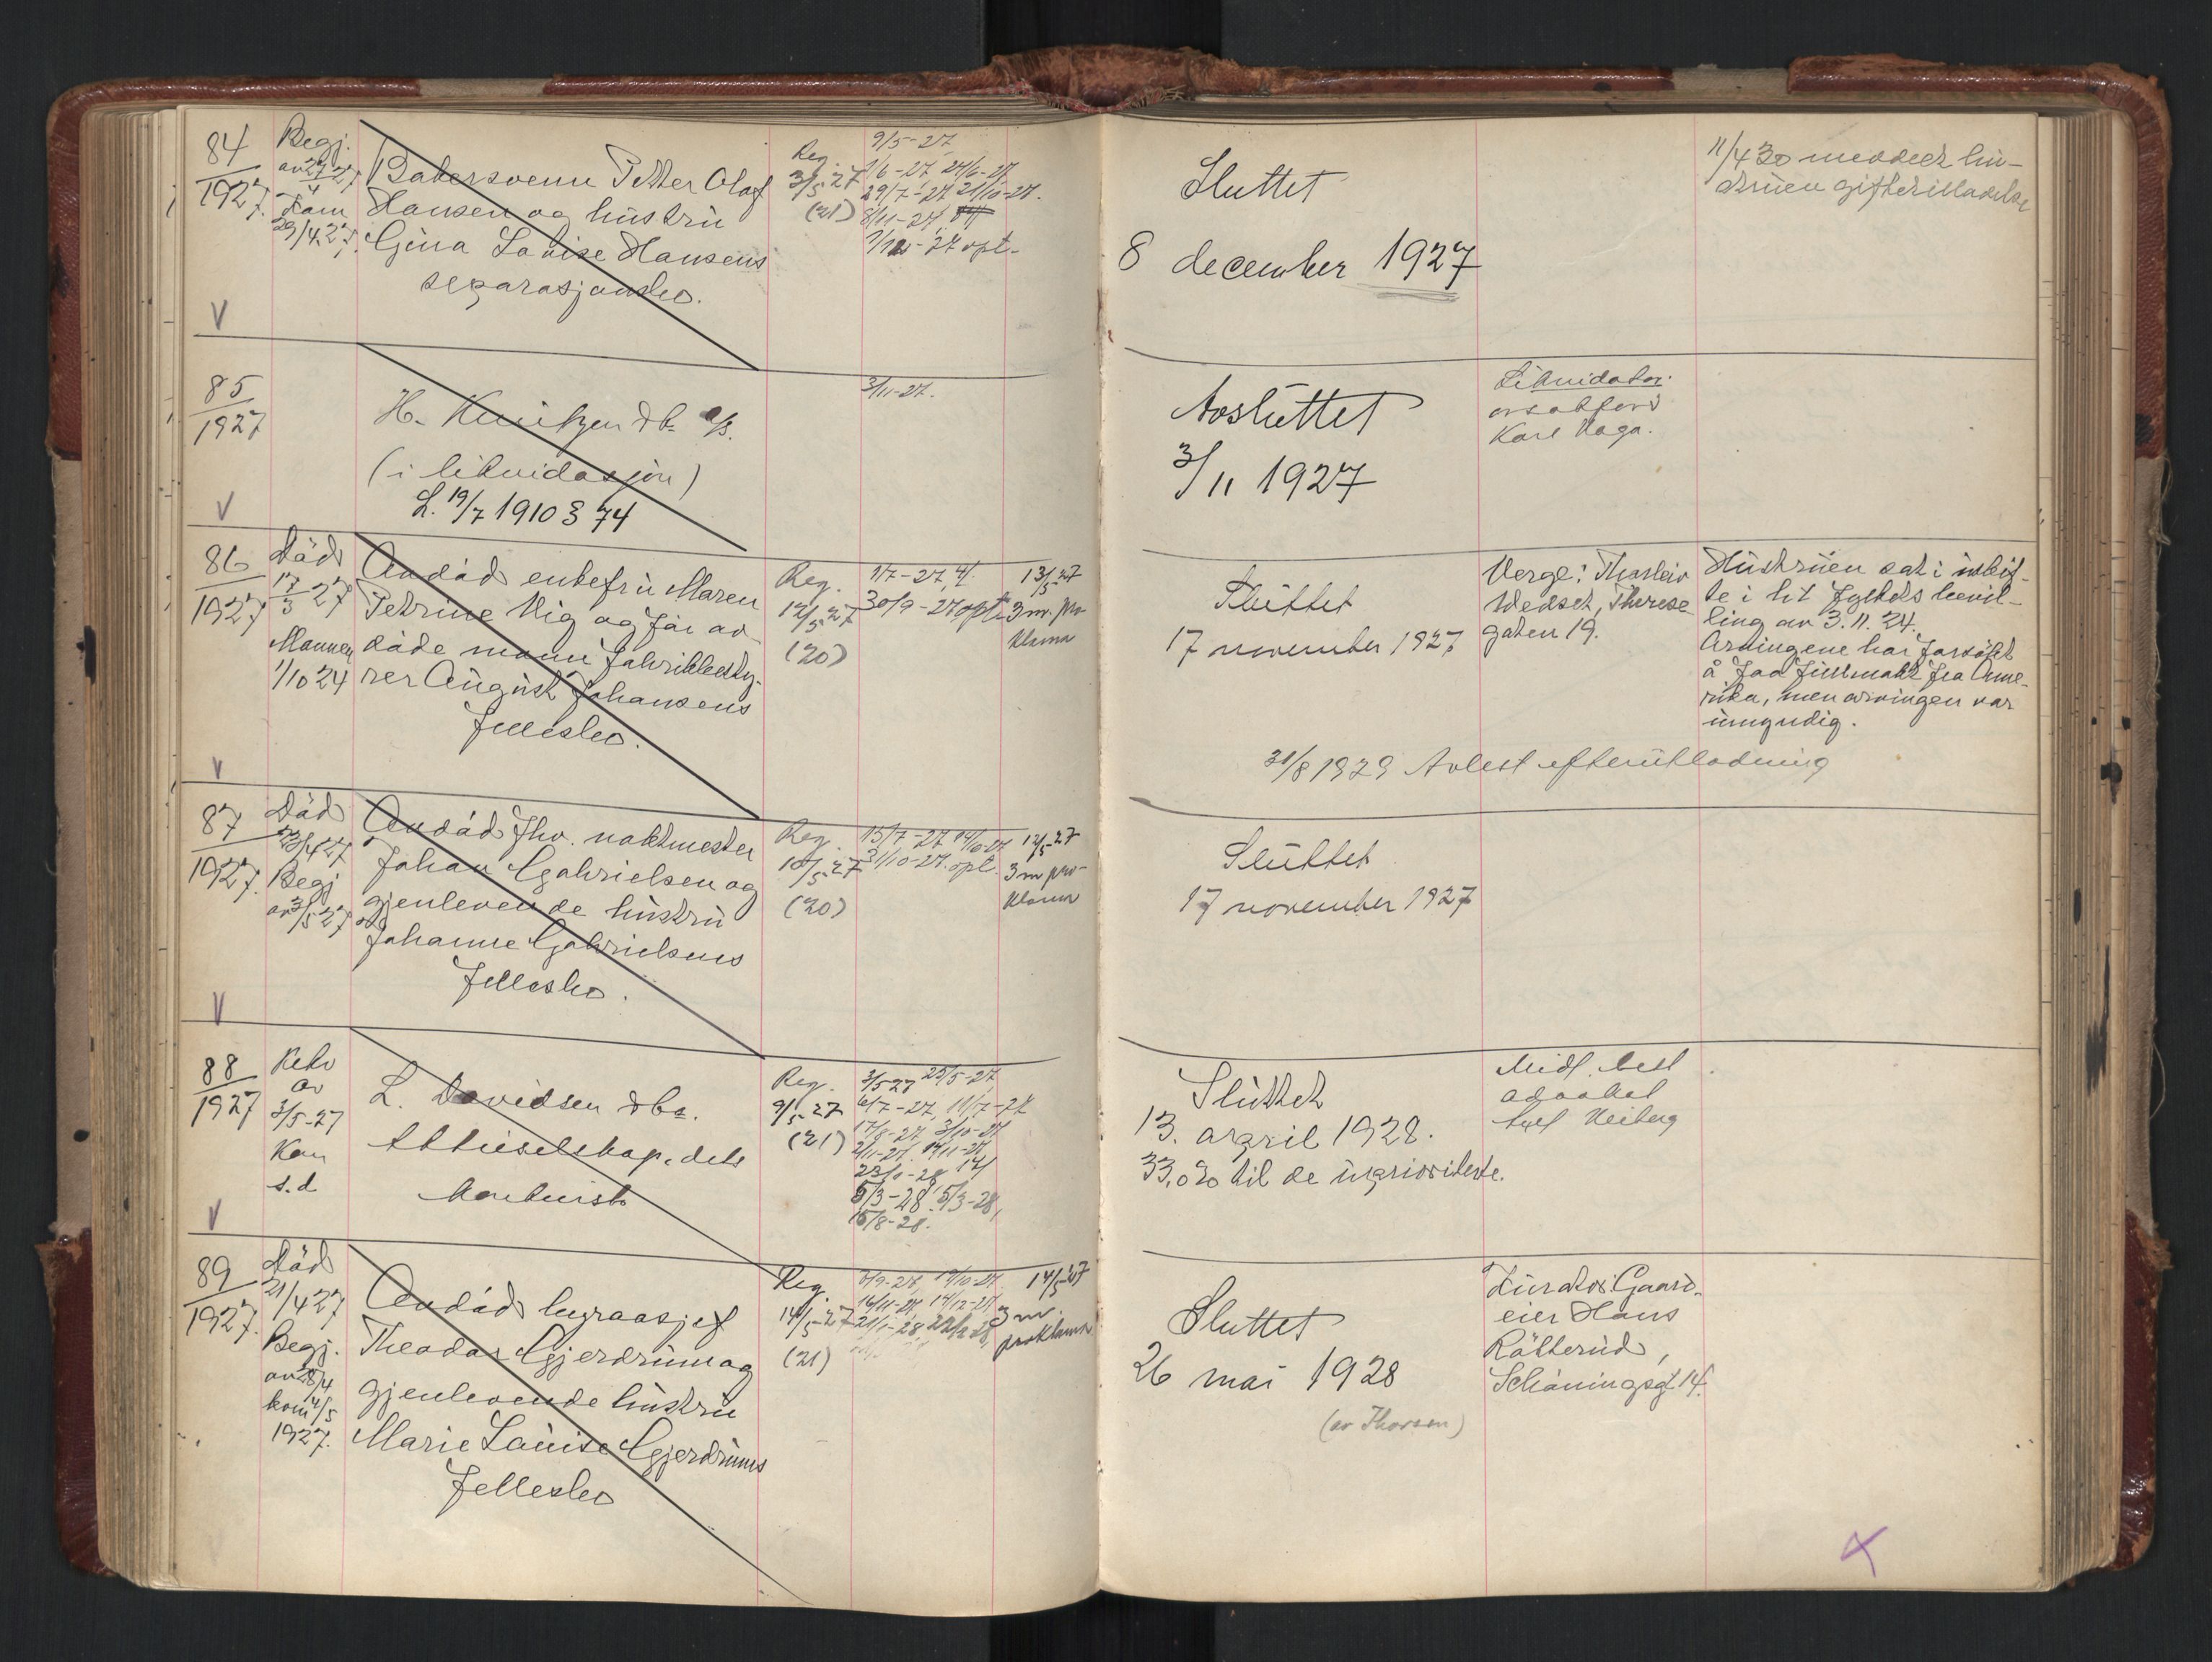 84
1927.
Begj.
av 27/4 27
kom
29/4 27.
Bakersvenn Petter Olaf
Hansen og hustru
Gina Lovise Hansens
separasjonsbo.
Reg.
3/5-27
(21)
9/5-27
1/6-27 24/6-27
29/7-27 21/10-27.
8/11-27
1/12-27 opt.
V
Sluttet
8 december 1927
11/4 30 meddelt hu-
struen giftertilladelse
85
1927
H. Knutzen & Co. A/S.
(i likvidasjon)
L. 19/7 1910 § 74
3/11-27.
V
Avsluttet
3/11 1927
Likvidator:
o.r.sakfører
Karl Haga.
86
1927
Död
17/3 27
Mannen
1/10 24
Avdöd enkefru Maren
Petrine Vig og før av-
döde mann fabrikkbesty-
rer August Johansens
fellesbo.
Reg.
12/5-27
(20)
1/7-27,
30/9-27 opt.
13/5-27
3 m. pro
klama
V
Sluttet
17 november 1927
Verge: Thorleiv
Wedset, Therese
gaten 19.
Hustruen sat i uskif-
te i hit fylkets bevil-
ling av 3.11.24.
Arvingene har forsökt
å faa fuldmakt fra Ame-
rika, men arvingen var
umyndig.
31/8 1929 Avlest efterutlodning
87
1927.
Död
23/4 27
Begj
av 3/5 27
Avdöd fhv. vaktmester
Johan Gabrielsen og
gjenlevende hustru
Johanne Gabrielsens
fellesbo.
Reg.
10/5-27
(20)
15/7-27 14/10-27
31/10-27. opt.
12/5-27
3 m pro-
klama
V
Sluttet
17 november 1927
88
1927
av
3/5-27
Kon
s.d
L. Davidsen & Co.
Aktieselskap, dets
konkursbo
Reg.
9/5-27
(21)
3/5 27 25/5-27,
6/7-27, 11/7-27
17/8-27, 3/10-27
2/11-27, 14/11-27,
23/1-28, 14/
5/3-28, 5/3-28,
15/8-28.
V
Sluttet
13. april 1928.
33,0% til de uprioriterte.
Midl. best
advokat
Axel Heiberg
89
1927.
Död
21/4 27
Begj.
av 28/4
kom 4/5
1927.
Avdöd byraasjef
Theodor Gjerdrum og
gjenlevende hustru
Marie Louise Gjerdrums
fellesbo
Reg.
14/5-27
(21)
7/9-27, 19/10-27.
16/11-27, 14/12-27,
21/1-28, 22/2 28,
14/5-27
3 m.
proklama
Sluttet
26 mai 1928
(av Thorsen)
Kurator: Gaard-
eier Hans
Råkkerud,
Schöningsgt. 14.